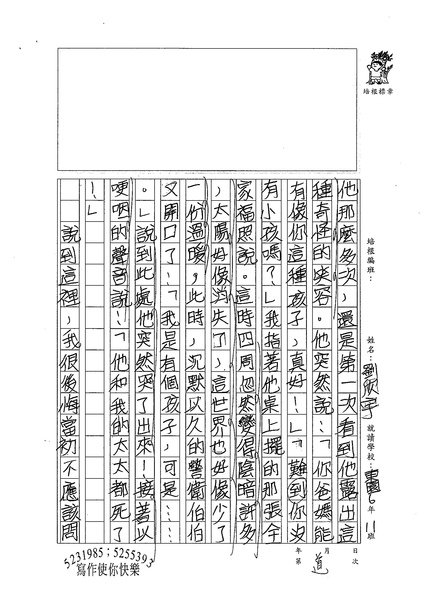 培根標章
培根編班：
姓名：劉欣宇
就讀學校：6年11班
月 日
年 第 道 次
他那麼多次，還是第一次看到他露出這
種奇怪的笑容。他突然說：「你爸媽能
有像你這種孩子，真好！」「難到你沒
有小孩嗎？」我指著他桌上擺的那張全
家福照說。這時四周忽然變得陰暗許多
，太陽好像消失了，這世界也好像少了
一份溫暖，此時，沉默以久的警衛伯伯
又開口了：「我是有個孩子，可是……
。」說到此處他突然哭了出來！接著以
哽咽的聲音說：「他和我的太太都死了
！」
說到這裡，我很後悔當初不應該問
5231985；5255393
寫作使你快樂